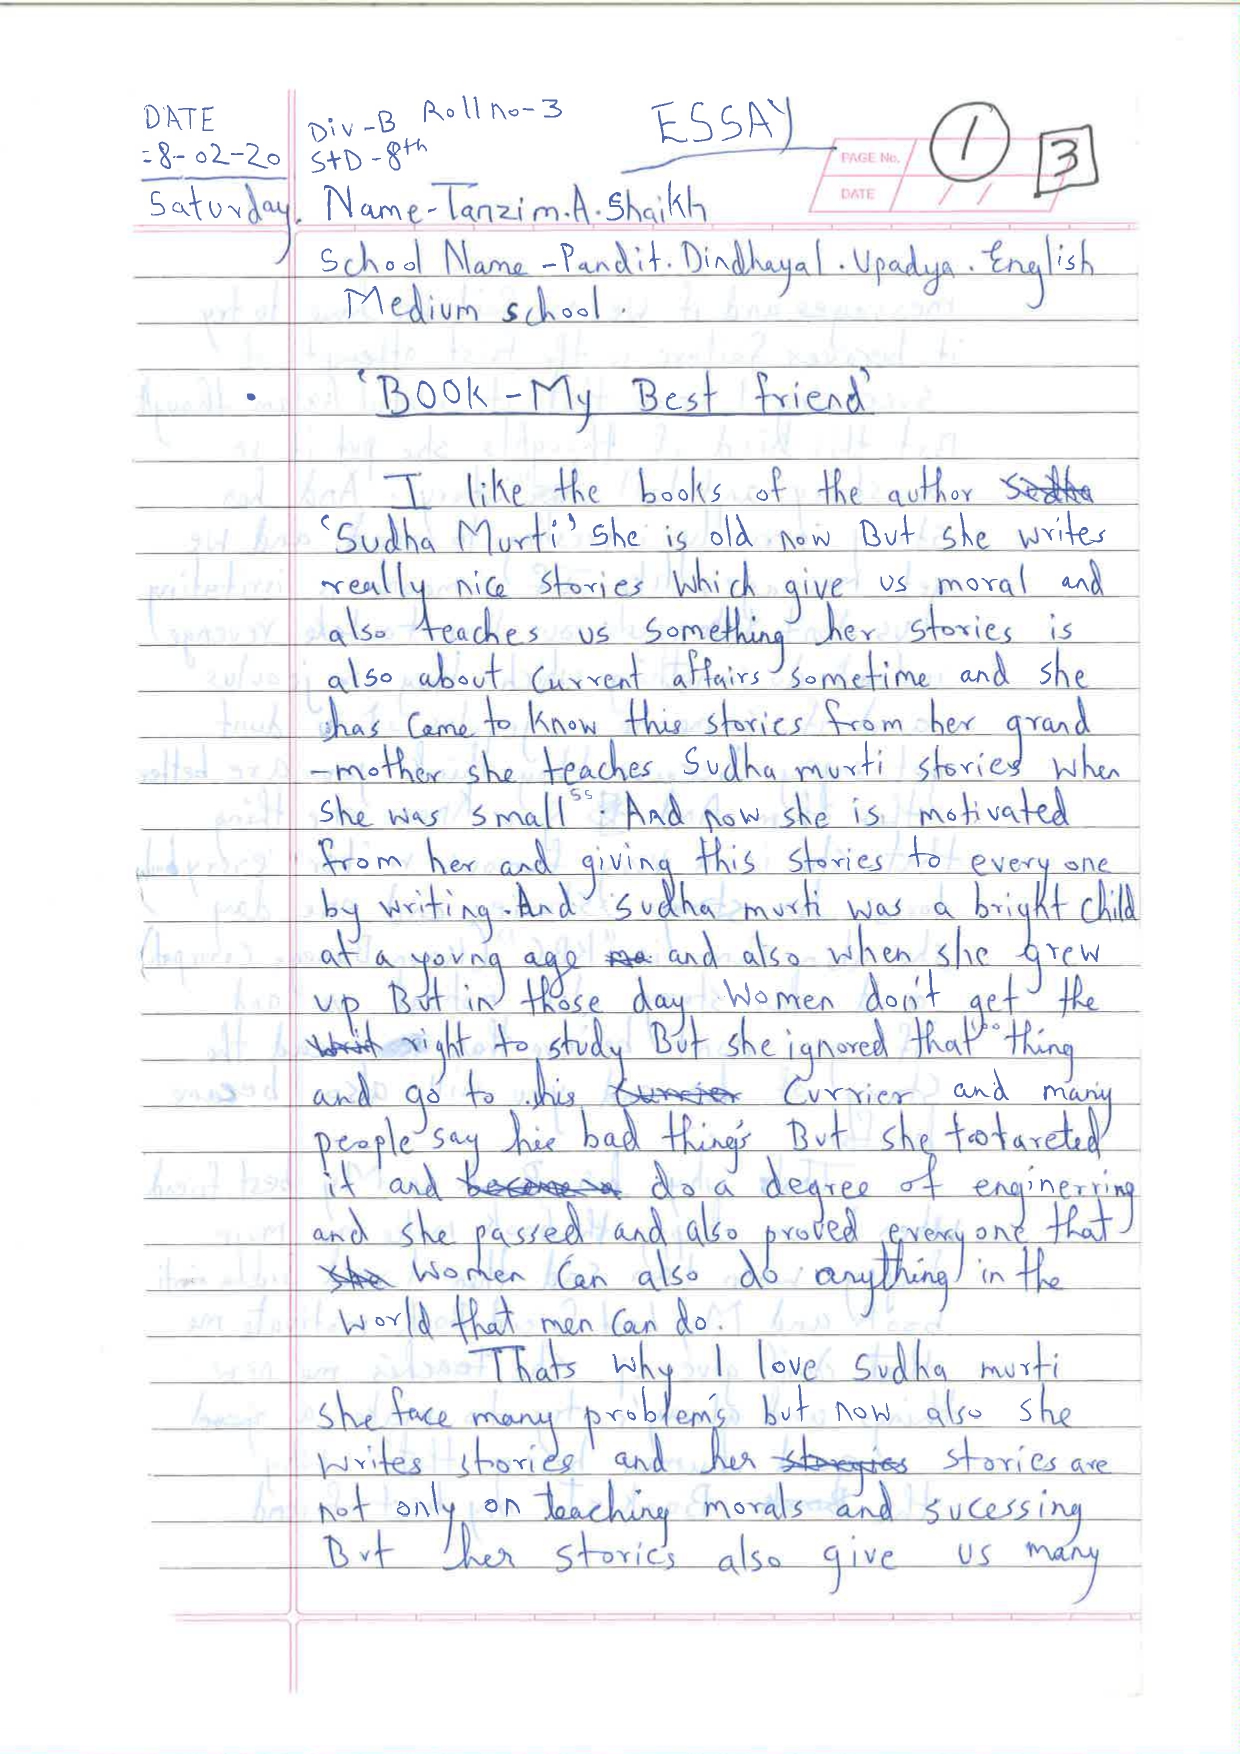 DATE
=8-02-20
Saturday.
Div-B Roll no-3
Std-8th
ESSAY
PAGE No.
DATE / /
1
3
Name-Tanzim.A.Shaikh
School Name -Pandit.Dindhayal.Upadya.English
Medium school.
'BOOK-My Best friend'
I like the books of the author Sedha
'Sudha Murti' She is old now But she writes
really nice stories which give us moral and
also teaches us something her stories is
also about current affairs sometime and she
has came to know this stories from her grand
-mother she teaches Sudha murti stories when
she was small. And now she is motivated
from her and giving this stories to every one
by writing.And Sudha murti was a bright child
at a young age and also when she grew
up But in those day women don't get the
right to study But she ignored that thing
and go to his Currier and many
people say her bad thing's But she tootareted
it and do a degree of enginerring
and she passed and also proved every one that
she women can also do anything in the
world that men can do.
Thats why I love Sudha murti
she face many problem's but now also she
writes stories and her stories are
not only on teaching morals and sucessing
But her stories also give us many